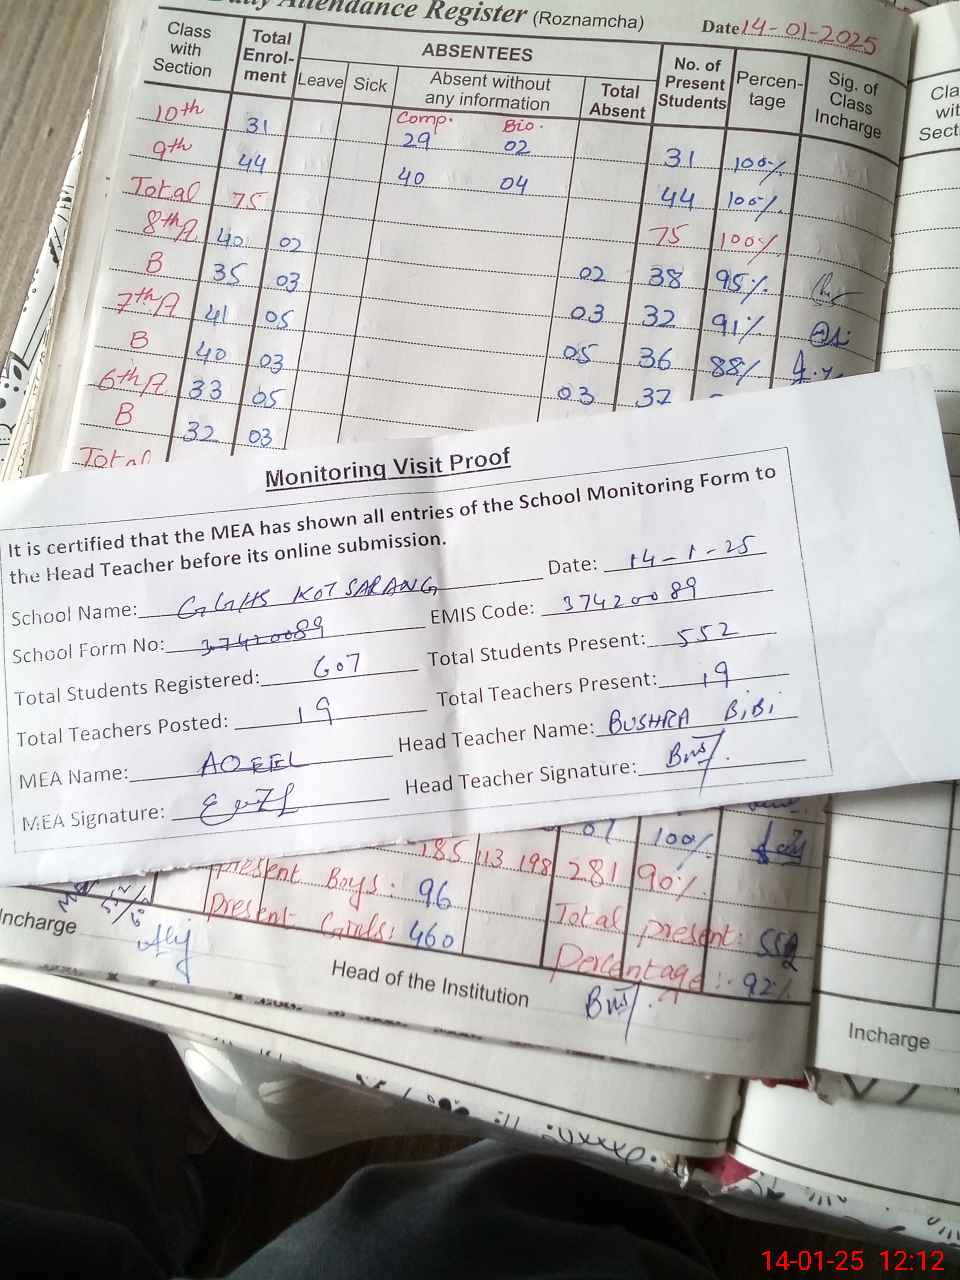 Daily Attendance Register (Roznamcha) Date 14-01-2025
Class with Section Total Enrol-ment ABSENTEES No. of Present Students Percen-tage Sig. of Class Incharge
Leave Sick Absent without any information Total Absent
Comp. Bio.
10th 31 29 02 31 100%
9th 44 40 04 44 100%
Total 75 75 100%
8th A 40 02 02 38 95%
B 35 03 03 32 91%
7th A 41 05 05 36 88%
B 40 03 03 37
6th A 33 05
B 32 03
Total
Cla
wit
Sect
Monitoring Visit Proof
It is certified that the MEA has shown all entries of the School Monitoring Form to
the Head Teacher before its online submission.
School Name: GGHS KOT SARANG Date: 14-1-25
School Form No: 37420089 EMIS Code: 37420089
Total Students Registered: 607 Total Students Present: 552
Total Teachers Posted: 19 Total Teachers Present: 19
MEA Name: AQEEL Head Teacher Name: BUSHRA BiBi
MEA Signature: Head Teacher Signature:
07 100%
185 113 198 281 90%
Present Boys: 96
Present Girls: 460 Total present:
Percentage: 92%
Incharge
Head of the Institution
Incharge
14-01-25 12:12